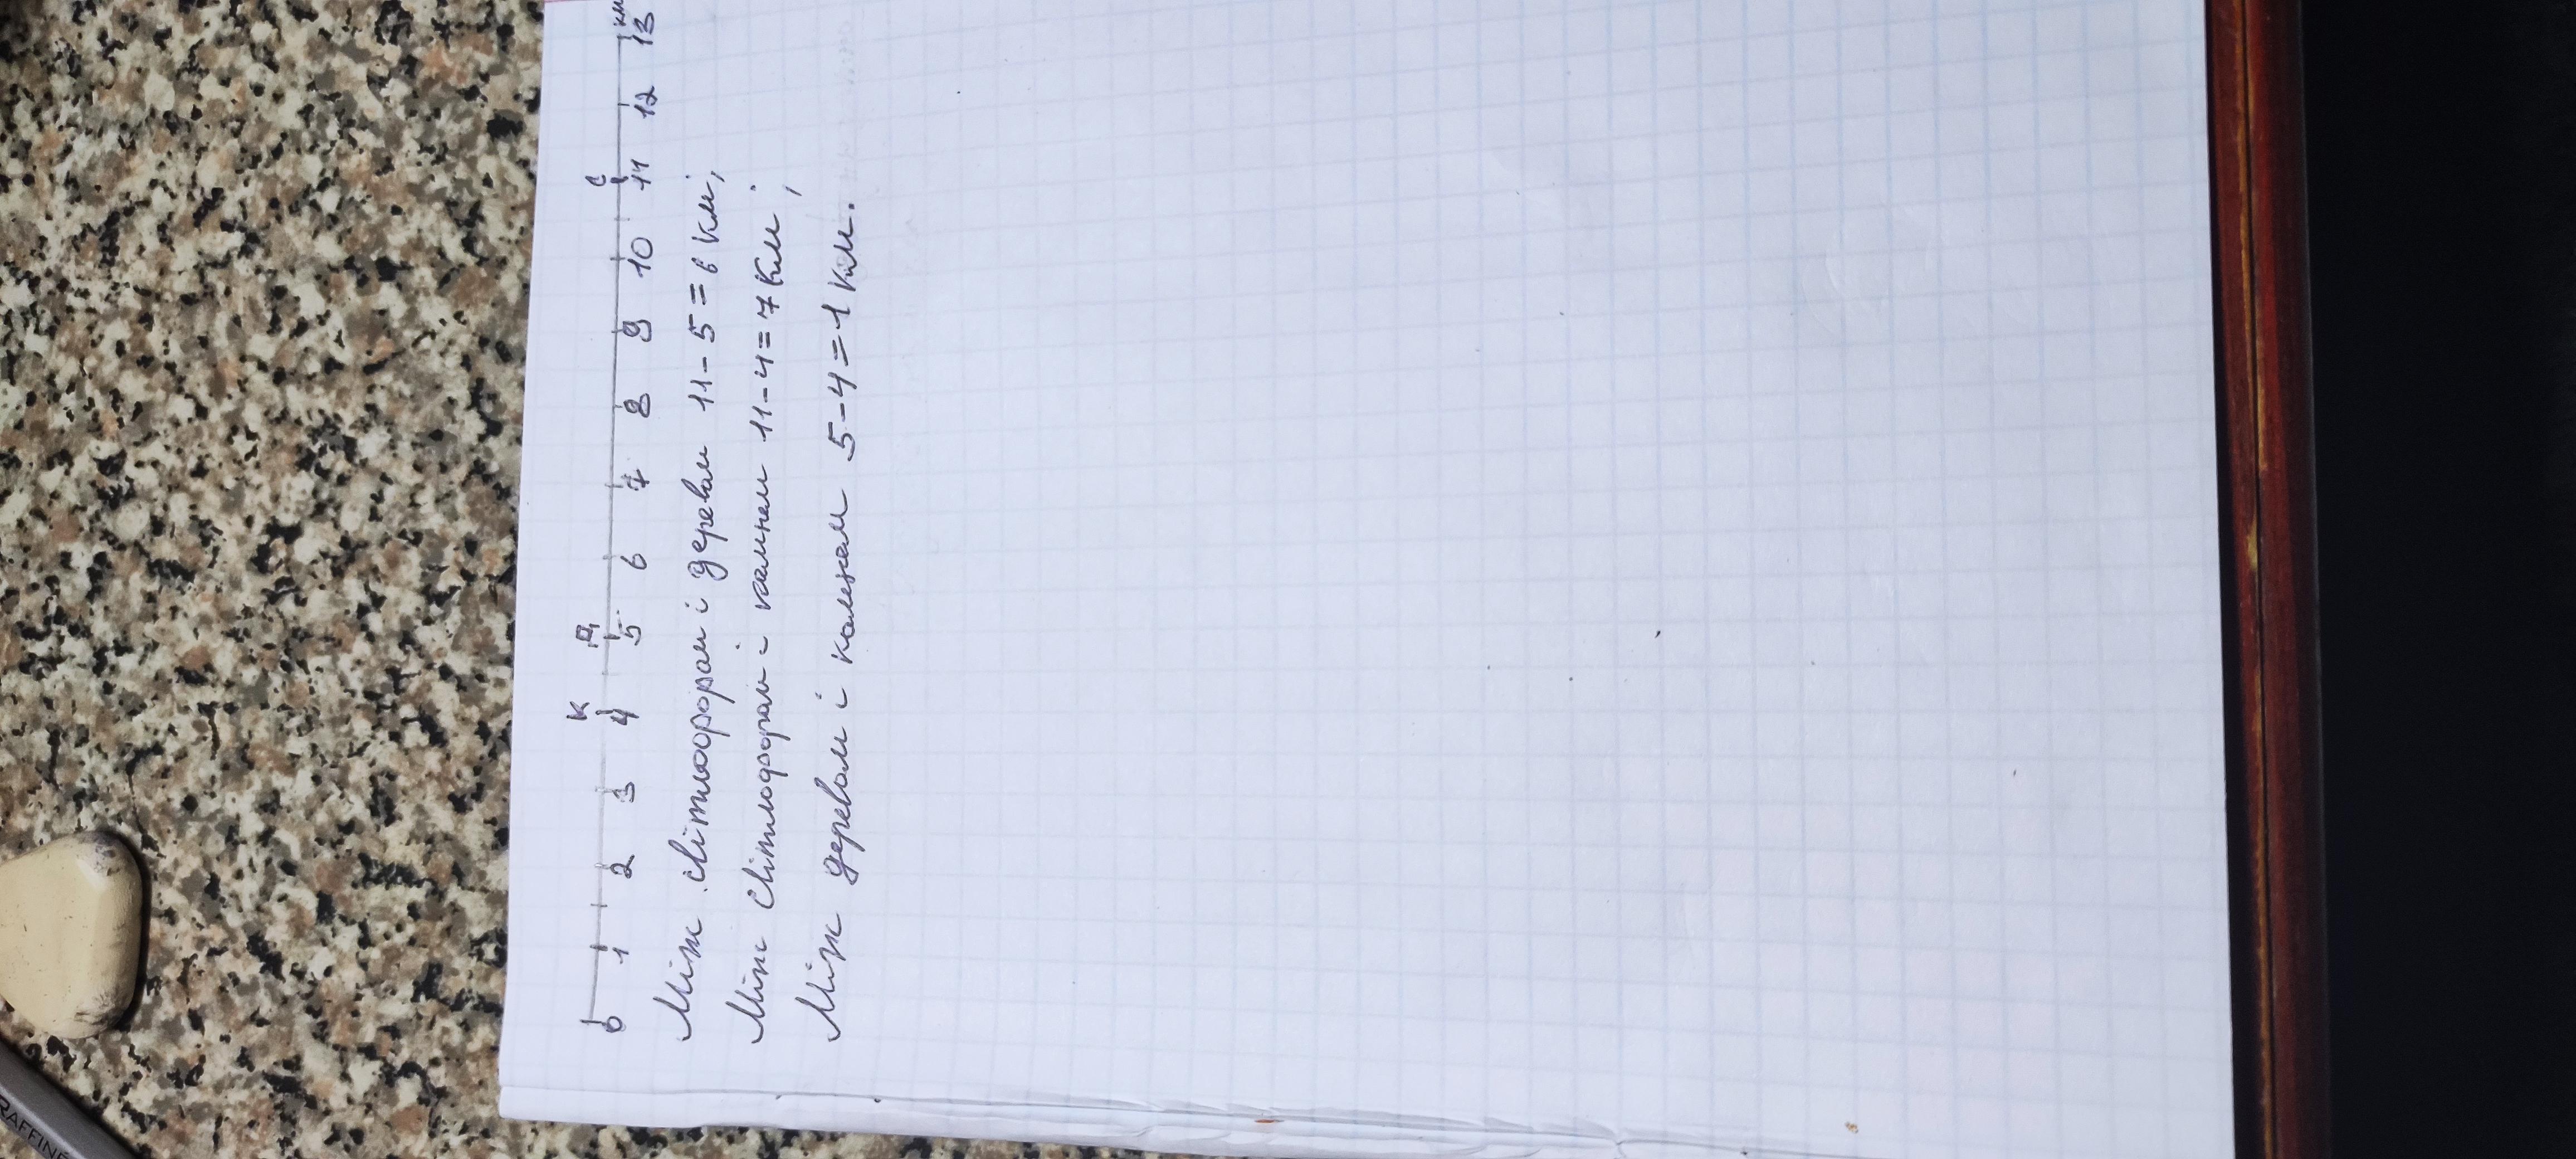 К Д С
0 1 2 3 4 5 6 7 8 9 10 11 12 13 км
Між світлофором і деревом 11-5=6 км;
Між світлофором і каменем 11-4=7 км;
Між деревом і каменем 5-4=1 км.
RAFFINÉ